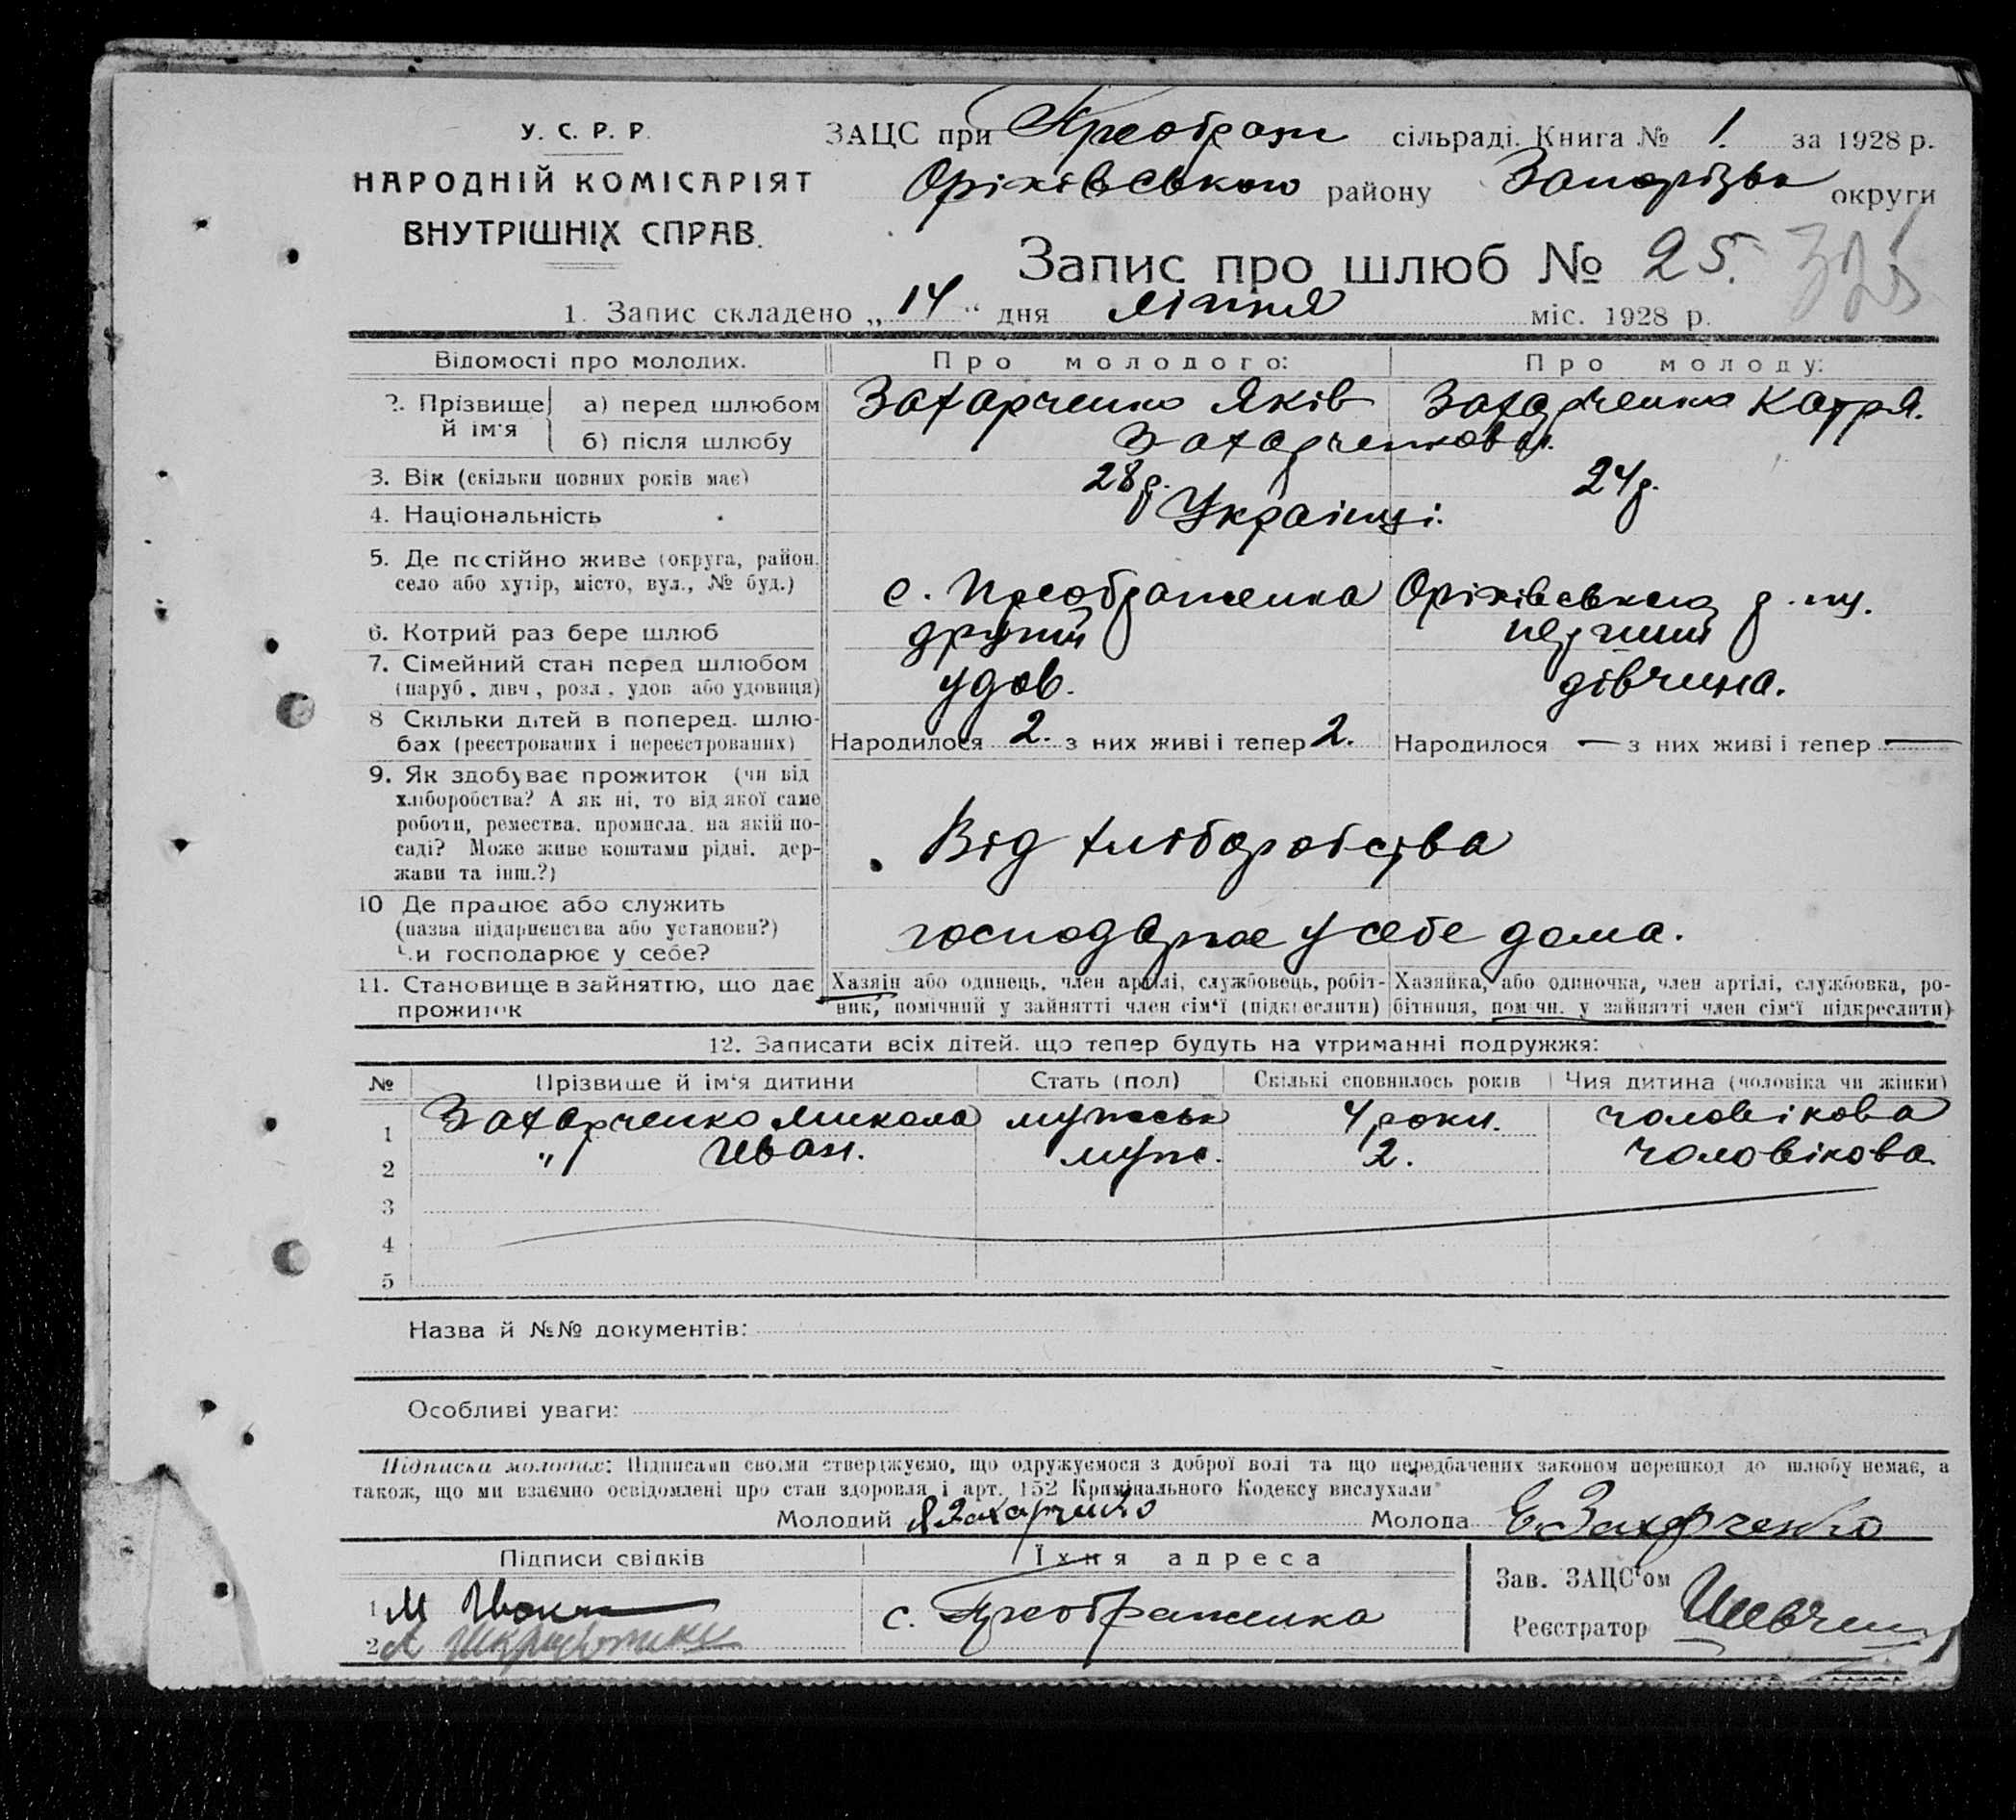 У. С. Р. Р.
НАРОДНІЙ КОМІСАРІЯТ
ВНУТРІШНІХ СПРАВ.
ЗАЦС при Преображ сільраді. Книга № 1. за 1928 р.
Оріхівського району Запорізьк округи
Запис про шлюб № 25. 325
1. Запис складено „14“ дня липня міс. 1928 р.
Відомості про молодих. Про молодого: Про молоду:
2. Прізвище й ім'я а) перед шлюбом Захарченко Яків Захарченко Катря.
б) після шлюбу Захарченкови.
3. Вік (скільки повних років має) 28 р. 24 р.
4. Національність Українці.
5. Де постійно живе (округа, район,
село або хутір, місто, вул., № буд.) с. Преображенка Оріхівського р.
6. Котрий раз бере шлюб другий перший
7. Сімейний стан перед шлюбом
(паруб., дівч., розл., удов. або удовиця) удов. дівчина.
8 Скільки дітей в поперед. шлю-
бах (реєстрованих і нереєстрованих) Народилося 2. з них живі і тепер 2. Народилося — з них живі і тепер —
9. Як здобуває прожиток (чи від
хліборобства? А як ні, то від якої саме
роботи, ремества, промисла, на якій по-
саді? Може живе коштами рідні, дер-
жави та інш.?) Від хліборобства
10 Де працює або служить
(назва підприємства або установи?)
Чи господарює у себе? господарює у себе дома.
11. Становище в зайняттю, що дає прожиток
Хазяїн або одинець, член артілі, службовець, робіт-
ник, помічний у зайнятті член сім'ї (підкреслити)
Хазяйка, або одиночка, член артілі, службовка, ро-
бітниця, помічн. у зайнятті член сім'ї підкреслити)
12. Записати всіх дітей, що тепер будуть на утриманні подружжя:
№ Прізвище й ім'я дитини Стать (пол) Скількі сповнилось років Чия дитина (чоловіка чи жінки)
1 Захарченко Микола мужськ 4 роки. чоловікова
2 " Иван. муж. 2. чоловікова
3
4
5
Назва й №№ документів:
Особливі уваги:
Підписка молодих: Підписами своїми стверджуємо, що одружуємося з доброї волі та що передбачених законом перешкод до шлюбу немає, а
також, що ми взаємно освідомлені про стан здоровля і арт. 152 Кримінального Кодексу вислухали
Молодий Я Захарченко Молода Е. Захарченко
Підписи свідків Їхня адреса
1 М
2 А
с. Преображенка
Зав. ЗАЦС'ом
Реєстратор